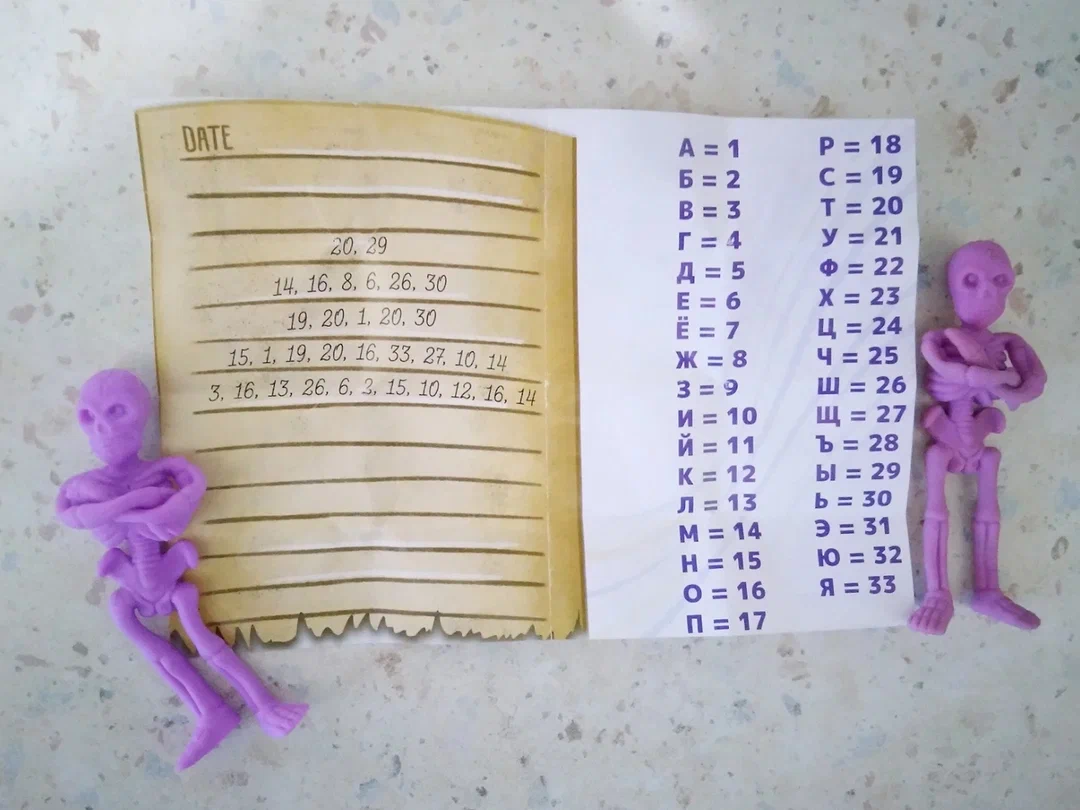 DATE
20, 29
14, 16, 8, 6, 26, 30
19, 20, 1, 20, 30
15, 1, 19, 20, 16, 33, 27, 10, 14
3, 16, 13, 26, 6, 2, 15, 10, 12, 16, 14
А = 1
Б = 2
В = 3
Г = 4
Д = 5
Е = 6
Ё = 7
Ж = 8
З = 9
И = 10
Й = 11
К = 12
Л = 13
М = 14
Н = 15
О = 16
П = 17
Р = 18
С = 19
Т = 20
У = 21
Ф = 22
Х = 23
Ц = 24
Ч = 25
Ш = 26
Щ = 27
Ъ = 28
Ы = 29
Ь = 30
Э = 31
Ю = 32
Я = 33